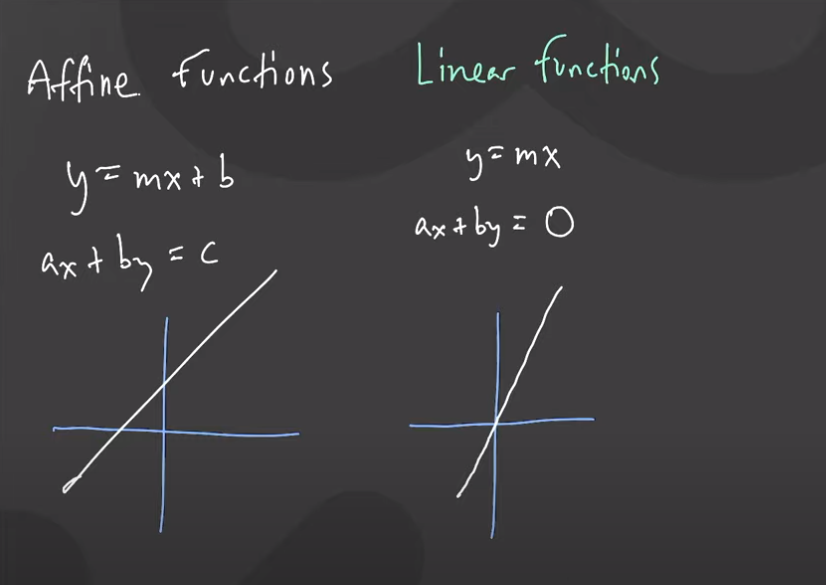 Affine Functions
y = mx + b
ax + by = c
Linear functions
y = mx
ax + by = 0